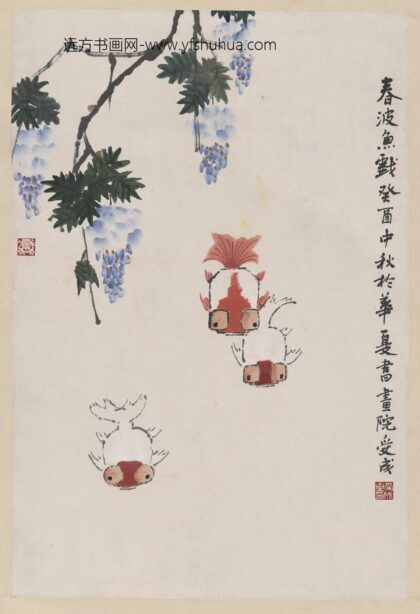 远方书画网-www.yfshuhua.com
春波魚戲癸酉中秋於華夏書畫院受成